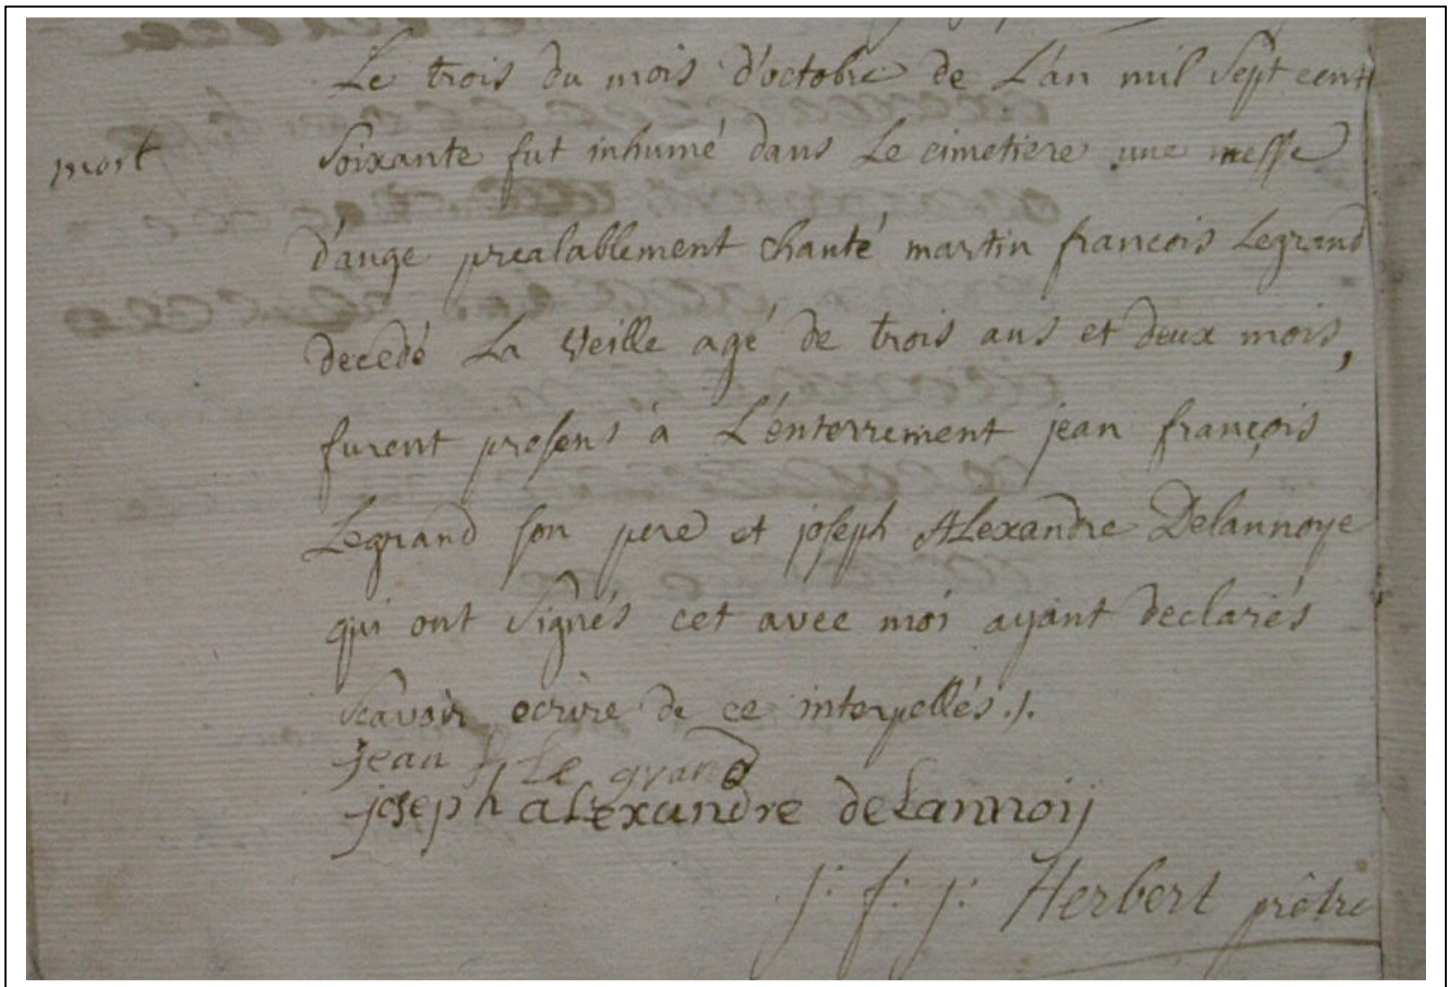 Le trois du mois d'octobre de L'an mil Sept cent
mort
Soixante fut inhumé dans Le cimetiere une messe
d'ange prealablement chanté martin francois Legrand
decedé La Veille agé de trois ans et deux mois,
furent presens à L'énterrement jean françois
Legrand son pere et joseph ALexandre Delannoye
qui ont Signés cet avec moi ayant declarés
Scavoir ecrire de ce interpellés ./.
jean f Le grand
joseph aLexandre deLannoij
j: f: j: Herbert prêtre